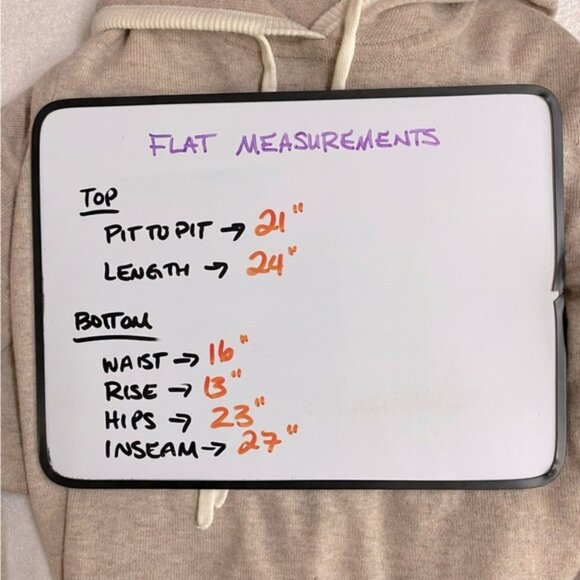 FLAT MEASUREMENTS
TOP
PIT TO PIT → 21"
LENGTH → 24"
BOTTOM
WAIST → 16"
RISE → 13"
HIPS → 23"
INSEAM → 27"